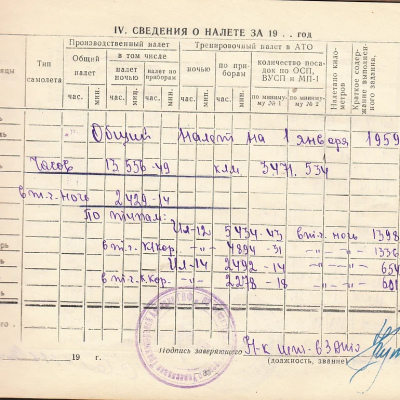 IV. СВЕДЕНИЯ О НАЛЕТЕ ЗА 19 . . год
Тип самолета
Производственный налет
Тренировочный налет в АТО
Налетано километров
Краткое содержание выполненного задания,
Общий налет
в том числе
ночью
по приборам
количество посадок по ОСП, ВУСП и МП-1
налет ночью
налет по приборам
по минимуму № 1
по минимуму № 2
час. мин. час. мин. час. мин. час. мин. час. мин.
Общий налет на 1 января 1959
Часов 13.556-49 клм. 3471.534
в т.ч. ночь 2429-14
По типам:
Ил-12 5434-43 в т.ч. ночь 1398
в т.ч. К/Кор. -"- 4894-31 -"- -"- 1336
Ил-14 2492-14 -"- -"- 654
в т.ч. К.Кор. -"- 2278-18 -"- -"-
19 г.
Подпись заверяющего
(должность, звание)